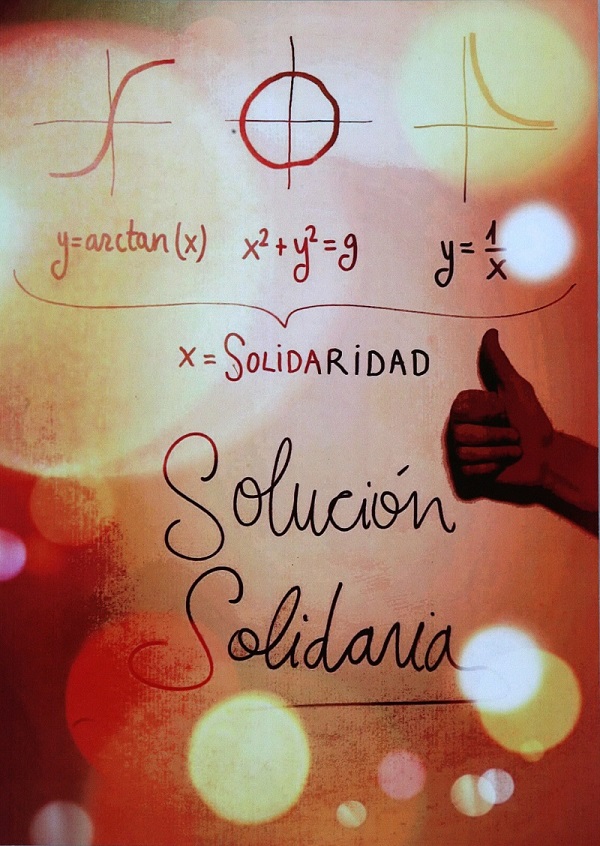 y=arctan(x) x²+y²=9 y=1/x
x=SOLIDARIDAD
Solución
Solidaria